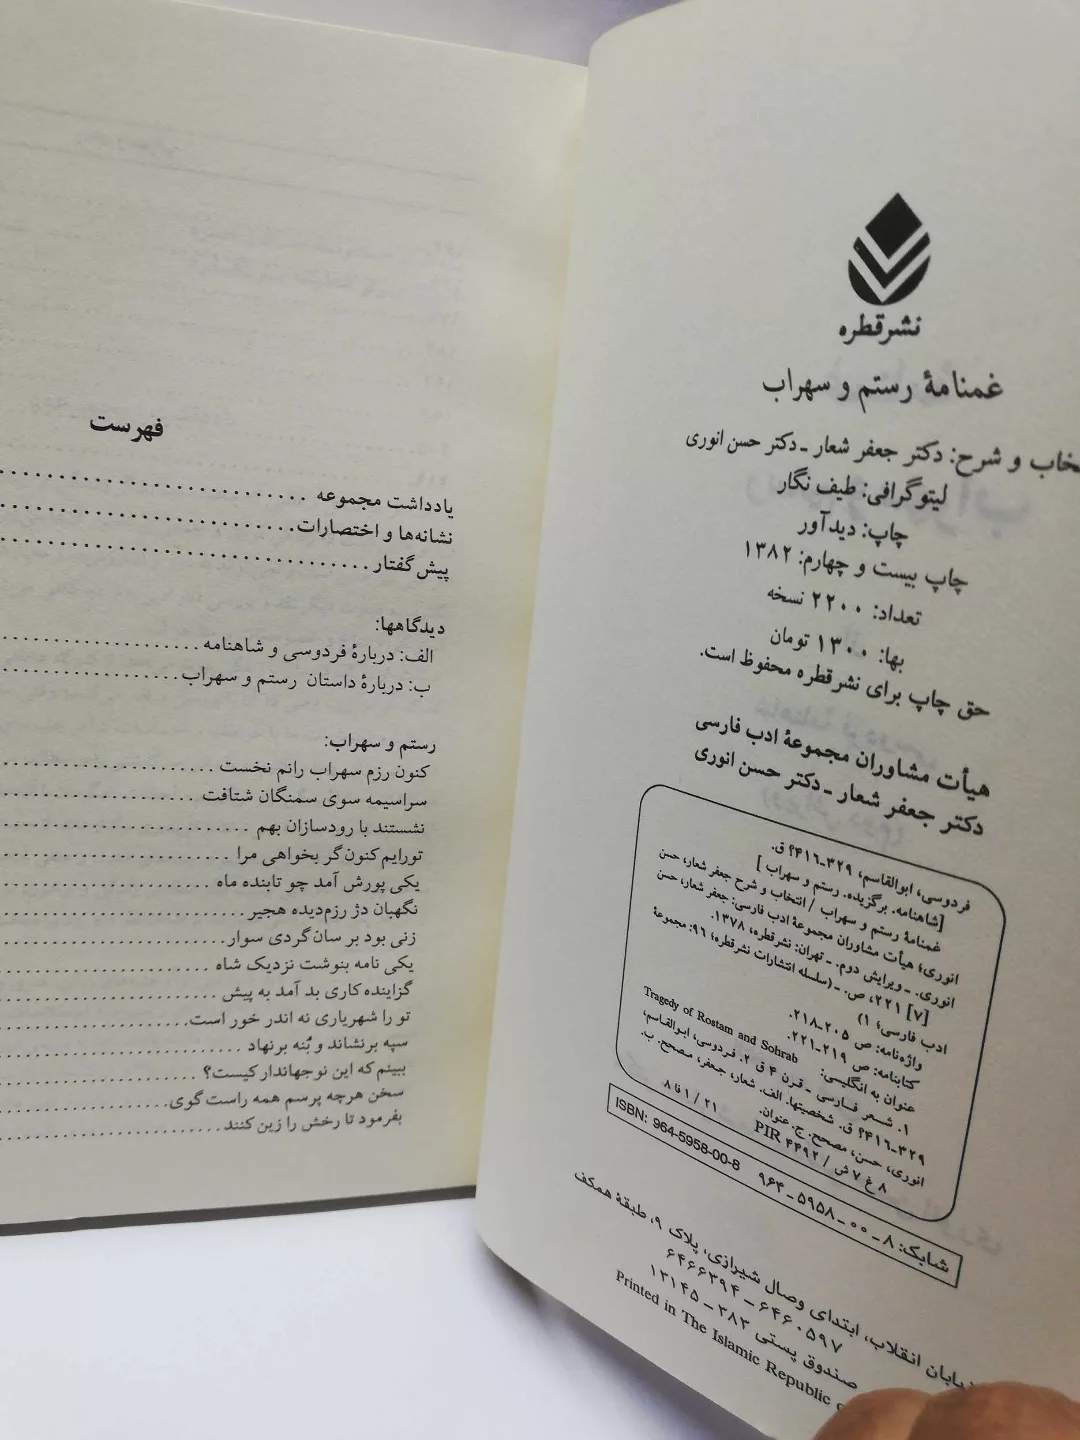 نشر قطره
غمنامهٔ رستم و سهراب
و شرح: دکتر جعفر شعار ـ دکتر حسن انوری
لیتوگرافی: طیف نگار
چاپ: دیدآور
چاپ بیست و چهارم: ۱۳۸۲
تعداد: ۲۲۰۰ نسخه
بها: ۱۳۰۰ تومان
حق چاپ برای نشر قطره محفوظ است.
هیأت مشاوران مجموعهٔ ادب فارسی
دکتر جعفر شعار ـ دکتر حسن انوری
فردوسی، ابوالقاسم، ۳۲۹-۴۱۶؟ ق.
[شاهنامه. برگزیده. رستم و سهراب]
غمنامهٔ رستم و سهراب / انتخاب و شرح جعفر شعار، حسن
انوری؛ هیأت مشاوران مجموعهٔ ادب فارسی: جعفر شعار، حسن
انوری. ـ ویرایش دوم. ـ تهران: نشر قطره، ۱۳۷۸.
[۷] ۲۲۱، ص. ـ (سلسله انتشارات نشر قطره؛ ۹۶: مجموعهٔ
ادب فارسی؛ ۱)
واژه‌نامه: ص ۲۰۵-۲۱۸.
کتابنامه: ص ۲۱۹-۲۲۱.
عنوان به انگلیسی: Tragedy of Rostam and Sohrab
۱. شعر فارسی ـ قرن ۴ ق ۲. فردوسی، ابوالقاسم،
۳۲۹-۴۱۶؟ ق. شخصیتها. الف. شعار، جعفر، مصحح. ب.
انوری، حسن، مصحح. ج. عنوان.
۸ غ ۷ ش / PIR ۴۴۹۲ ۲۱ / ۱ فا ۸
شابک: ۸ ـ ۰۰ ـ ۵۹۵۸ ـ ۹۶۴ ISBN: 964-5958-00-8
انقلاب، ابتدای وصال شیرازی، پلاک ۹، طبقهٔ همکف
۶۴۶۰۵۹۷ – ۶۴۶۶۳۹۴
صندوق پستی ۳۸۳ – ۱۳۱۴۵
Printed in The Islamic Republic
فهرست
یادداشت مجموعه
نشانه‌ها و اختصارات
پیش‌گفتار
دیدگاهها:
الف: دربارهٔ فردوسی و شاهنامه
ب: دربارهٔ داستان رستم و سهراب
رستم و سهراب:
کنون رزم سهراب رانم نخست
سراسیمه سوی سمنگان شتافت
نشستند با رودسازان بهم
تورایم کنون گر بخواهی مرا
یکی پورش آمد چو تابنده ماه
نگهبان دژ رزم‌دیده هجیر
زنی بود بر سان گردی سوار
یکی نامه بنوشت نزدیک شاه
گزاینده کاری بد آمد به پیش
تو را شهریاری نه اندر خور است
سپه برنشاند و بُنه برنهاد
ببینم که این نوجهاندار کیست؟
سخن هرچه پرسم همه راست گوی
بفرمود تا رخش را زین کنند